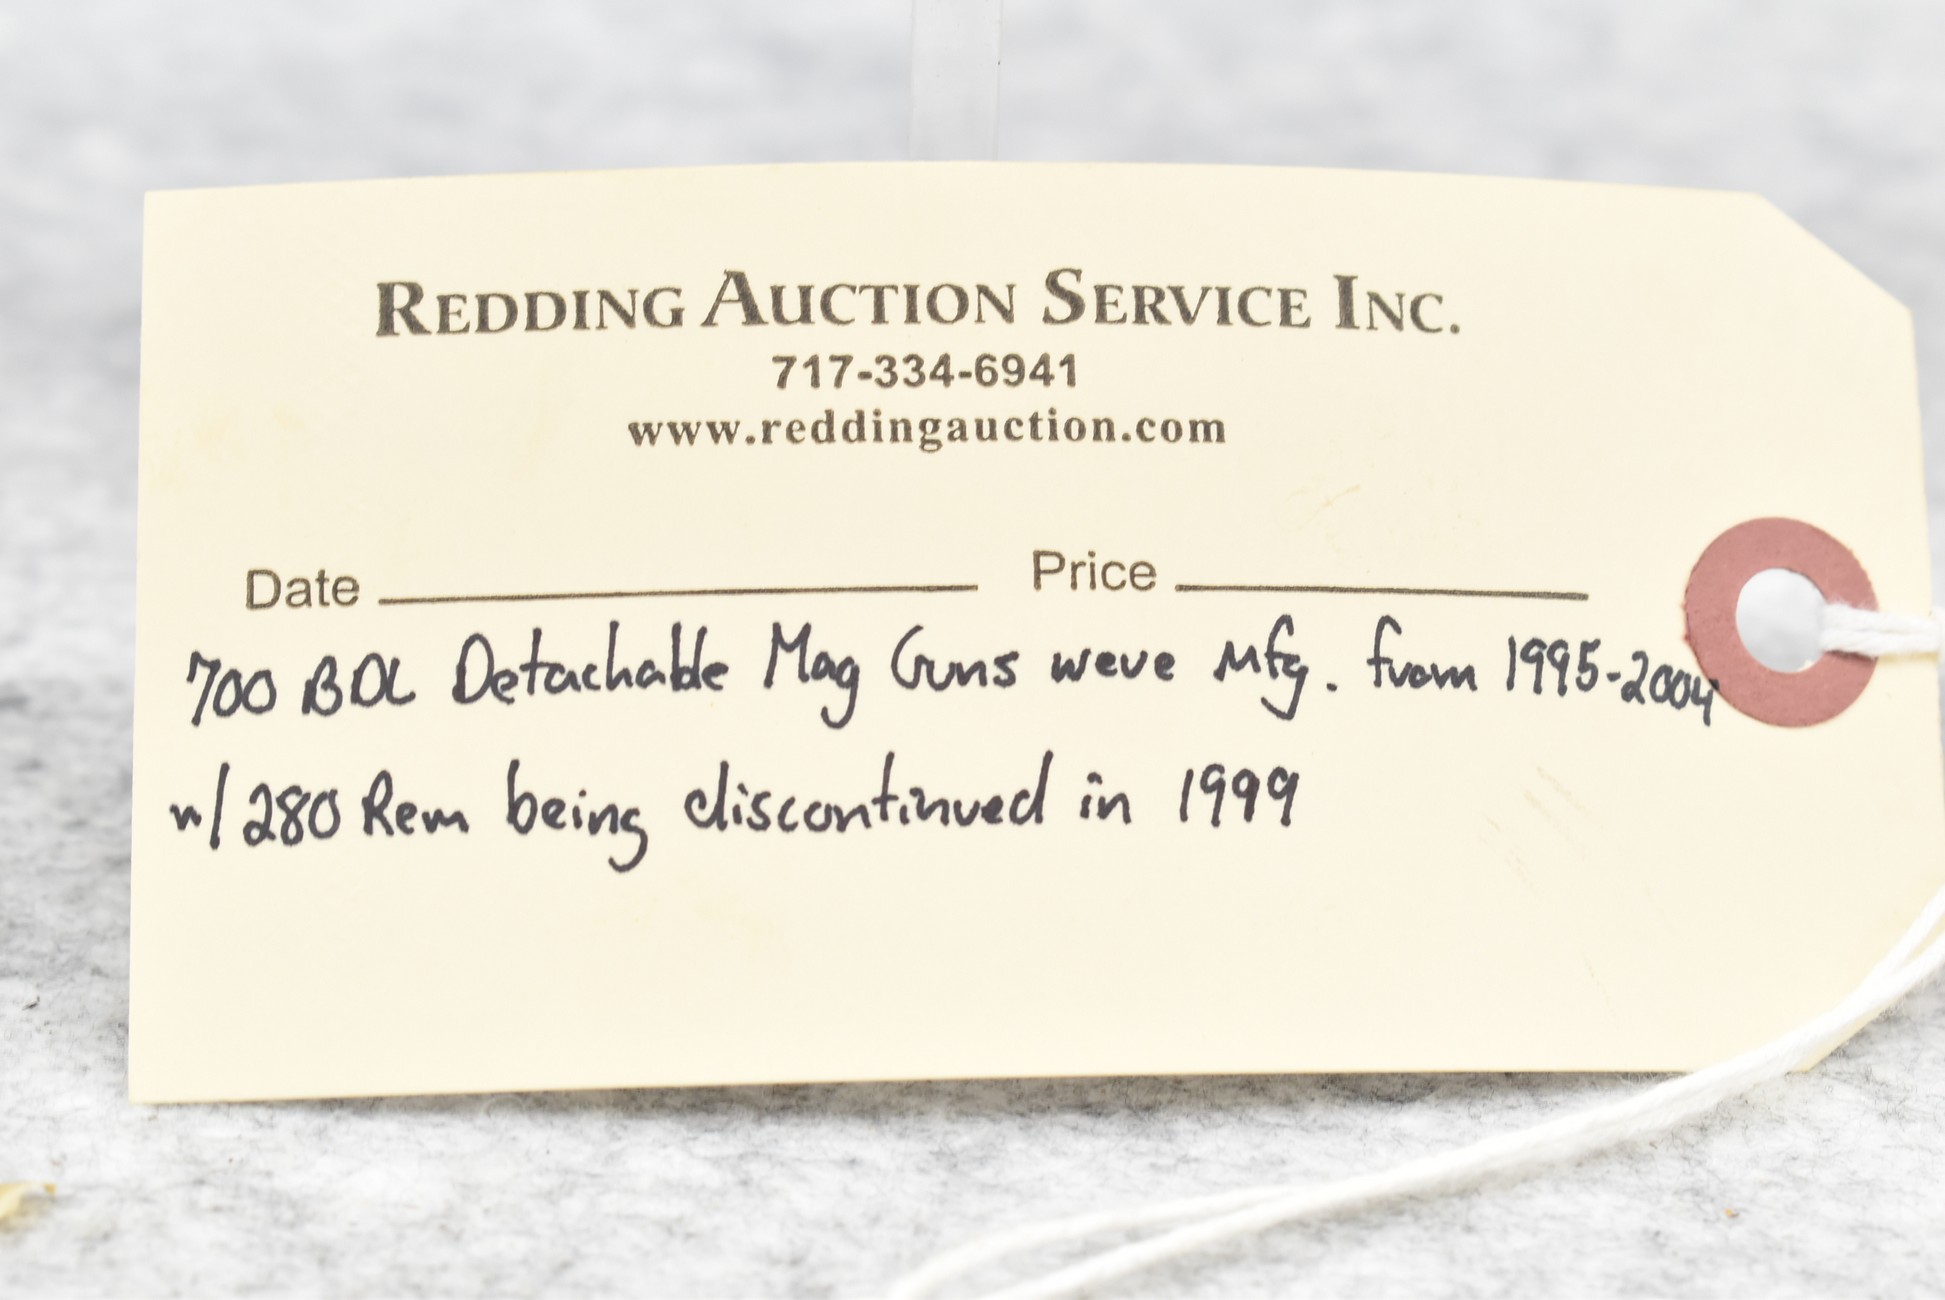 REDDING AUCTION SERVICE INC.
717-334-6941
www.reddingauction.com
Date Price
700 BDL Detachable Mag Guns were Mfg. from 1995-2004
w/ 280 Rem being discontinued in 1999